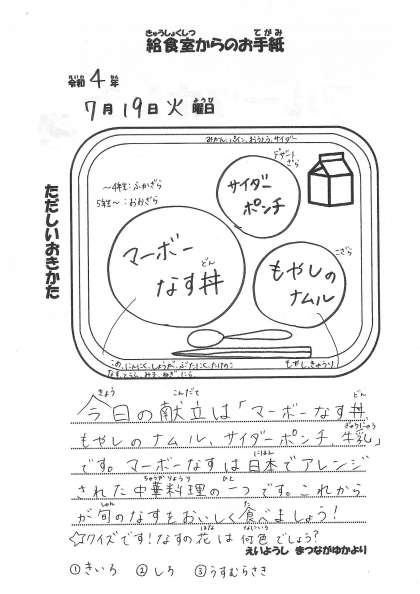 給食室からのお手紙
令和4年
7月19日火曜日
ただしいおきかた
みかん、パイン、おうとう、サイダー
デザートざら
サイダーポンチ
〜4年生:ふかざら
5年生〜:おおざら
マーボーなす丼
こざら
もやしのナムル
こめ、にんにく、しょうが、ぶたにく、たけのこ
なす、とうふ、みそ、ねぎ、にら
もやし、きゅうり
今日の献立は「マーボーなす丼、
もやしのナムル、サイダーポンチ 牛乳」
です。マーボーなすは日本でアレンジ
された中華料理の一つです。これから
が旬のなすをおいしく食べましょう!
☆クイズです!なすの花は何色でしょう?
えいようし まつながゆかより
①きいろ ②しろ ③うすむらさき